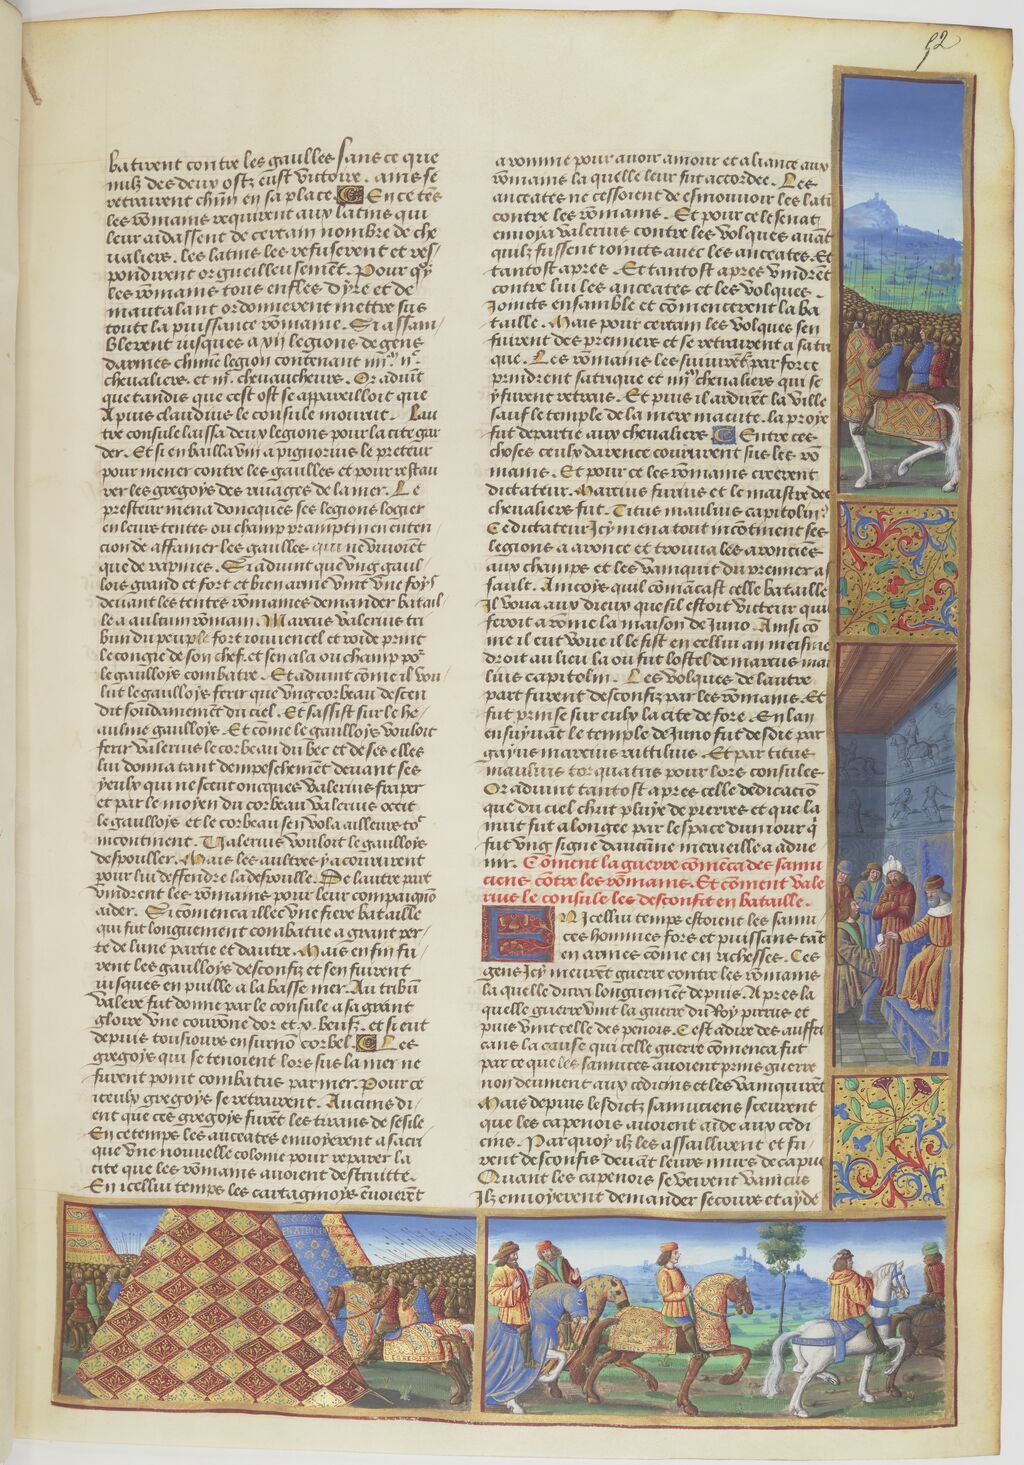 52
batirent contre les gaulles sans ce que
nulz des deux ostz eust victoire. ains se
retrairent chũn en sa place. C En ce tẽs
les rõmains requirent aux latins qui
leur aidassent de certain nombre de che
ualiers. les latins les refuserent et res
pondirent orgueilleusement. Pour quoy
les rõmains tous enfles dyre et de
mautalant ordonnerent mettre sus
toute la puissance rõmaine. Si assem
blerent iusques a vij legions de gens
darmes chũne legion contenant
cheualiers et iijᶜ cheuaucheurs. Or aduint
que tandis que cest ost se appareilloit que
Apius claudius le consule mourut. Lau
tre consule laissa deux legions pour la cite gar
der. Et si en bailla viij a pignorius le preteur
pour mener contre les gaulles et pour restau
rer les gregoys des riuages de la mer. Le
presteur mena doncques ses legions logier
en leurs tentes ou champ pramptin en enten
cion de affamer les gaulles qui ne viuoiẽt
que de rapines. Si aduint que vng gaul
lois grand et fort et bien arme vint vne foys
deuant les tentes rõmaines demander batail
le a aulcun rõmain. Marcus valerius tri
bun du peuple fort iouuencel et roide print
le congie de son chef. et sen ala ou champ poʳ
le gaulloys combatre. Et aduint cõme il vou
lut le gaulloys ferir que vng corbeau descen
dit soudainement du ciel. Et sassist sur le he
aulme gaulloys. Et cõme le gaulloys vouloit
ferir valerius le corbeau du bec et de ses elles
lui donna tant dempeschemẽt deuant ses
yeulx qui ne sceut oncques valerius fraper
et par le moyen du corbeau valerius occit
le gaulloys et le corbeau sen vola ailleurs toᵗ
incontinent. Valerius vouloit le gaulloys
despouller. Mais les aultres y acoururent
pour lui deffendre la despoulle. De lautre part
vindrent les rõmains pour leur compaignõ
aider. Si comenca illec vne fiere bataille
qui fut longuement combatue a grant per
te de lune partie et dautre. Mais en fin fu
rent les gaulloys desconfiz et sen fuirent
iusques en puille a la basse mer. Au tribũ
valere fut donne par le consule a sa grant
gloire vne couronne dor et x. beufz. et si eut
depuis tousiours en surnõ corbel. C Les
gregoys qui se tenoient lors sus la mer ne
furent point combatus par mer. Pour ce
iceulx gregoys se retrairent. Aucuns di
ent que ces gregoys furẽt les tirans de sesile
En ce temps les anceates enuoyerent a satri
que vne nouuelle colonie pour reparer la
cite que les rõmains auoient destruitte.
En icellui temps les cartaginoys ẽuoierẽt
a romme pour auoir amour et aliance aux
rõmains la quelle leur fut accordee. Les
anceates ne cessoient de esmouuoir les lati
contre les rõmains. Et pour ce le senat
enuoya valerius contre les volques auãt
quilz fussent ioincts auec les anceates. Et
tantost apres. Et tantost apres vindrẽt
contre lui les anceates et les volques.
Joincts ensamble et cõmencerent la ba
taille. Mais pour certain les volques sen
fuirent des premiers et se retrairent a satri
que. Les rõmains les suiuirẽt. par force
prindrent satrique et iiijᵐ cheualiers qui se
y furent retrais. Et puis il ardirẽt la ville
sauf le temple de la mere matute. la proye
fut departie aux cheualiers. C Entre ces
choses ceulx darence coururent sus les rõ
mains. Et pour ce les rõmains creerent
dictateur. Marcius furius et le maistre des
cheualiers fut. Titus maulius capitolin.
Ce dictateur Jcy mena tout incõtinent ses
legions a aronce et trouua les aronciẽs
aux champs et les vainquit du premier as
sault. Aincoys quil cõmẽcast celle bataille
Jl voua aux dieux que sil estoit victeur quil
feroit a rõme la maison de Juno. Ainsi cõ
me il eut voue il le fist en cellui an meisme
droit au lieu la ou fut lostel de marcus mau
luis capitolin. Les volques de lautre
part furent desconfiz par les rõmains. Et
fut prinse sur eulx la cite de sore. En lan
ensuyuant le temple de Juno fut desdie par
gayus marcius ruttilius. Et par titus
maulius torquatus pour lors consules.
Or aduint tantost apres celle dedicaciõ
que du ciel chut pluye de pierres et que la
nuit fut alongee par lespace dun iour q̃
fut vng signe daucune merueille a adue
nir. Cõment la guerre cõmẽca des samni
ciens cõtre les rõmains. Et cõment vale
rius le consule les desconfit en bataille.
En icellui temps estoient les samni
ces hommes fors et puissans tãt
en armes cõme en richesses. Ces
gens Jcy meurẽt guerre contre les rõmains
la quelle dura longuement depuis. Apres la
quelle guerre vint la guerre du Roy pirrus et
puis vint celle des penois. Cest adire des auffri
cans la cause qui celle guerre cõmenca fut
par ce que les samnites auoient prins guerre
non deuement aux cedicins et les vainquirẽt
Mais depuis lesdictz samniciens sceurent
que les capenois auoient aide aux cedi
cins. Par quoy ilz les assaillirent et fu
rent desconfis deuãt leurs murs de capue
Quant les capenois se veirent vaincus
Jlz enuoyerent demander secours et ayde